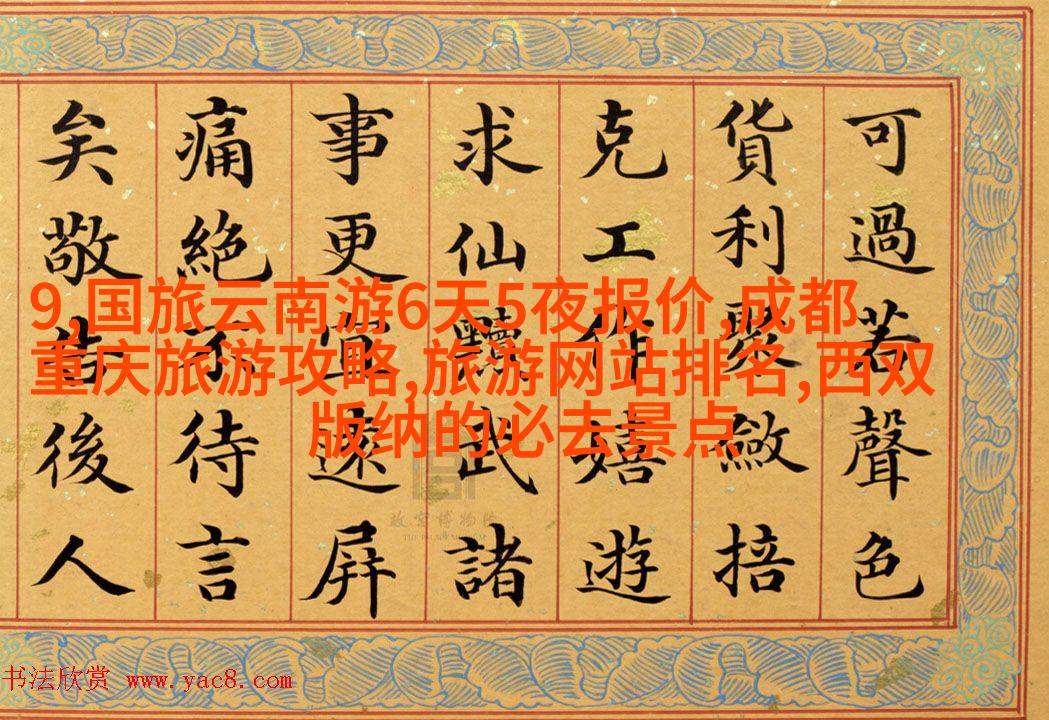 可過若聲色
貨利聚斂掊
克工作嬉遊
求仙黷武諸
事更宜遠屏
痛絕不待言
矣敬告後人
9,国旅云南游6天5夜报价,成都
重庆旅游攻略,旅游网站排名,西双
版纳的必去景点
故宫博物院
书法欣赏 www.yac8.com